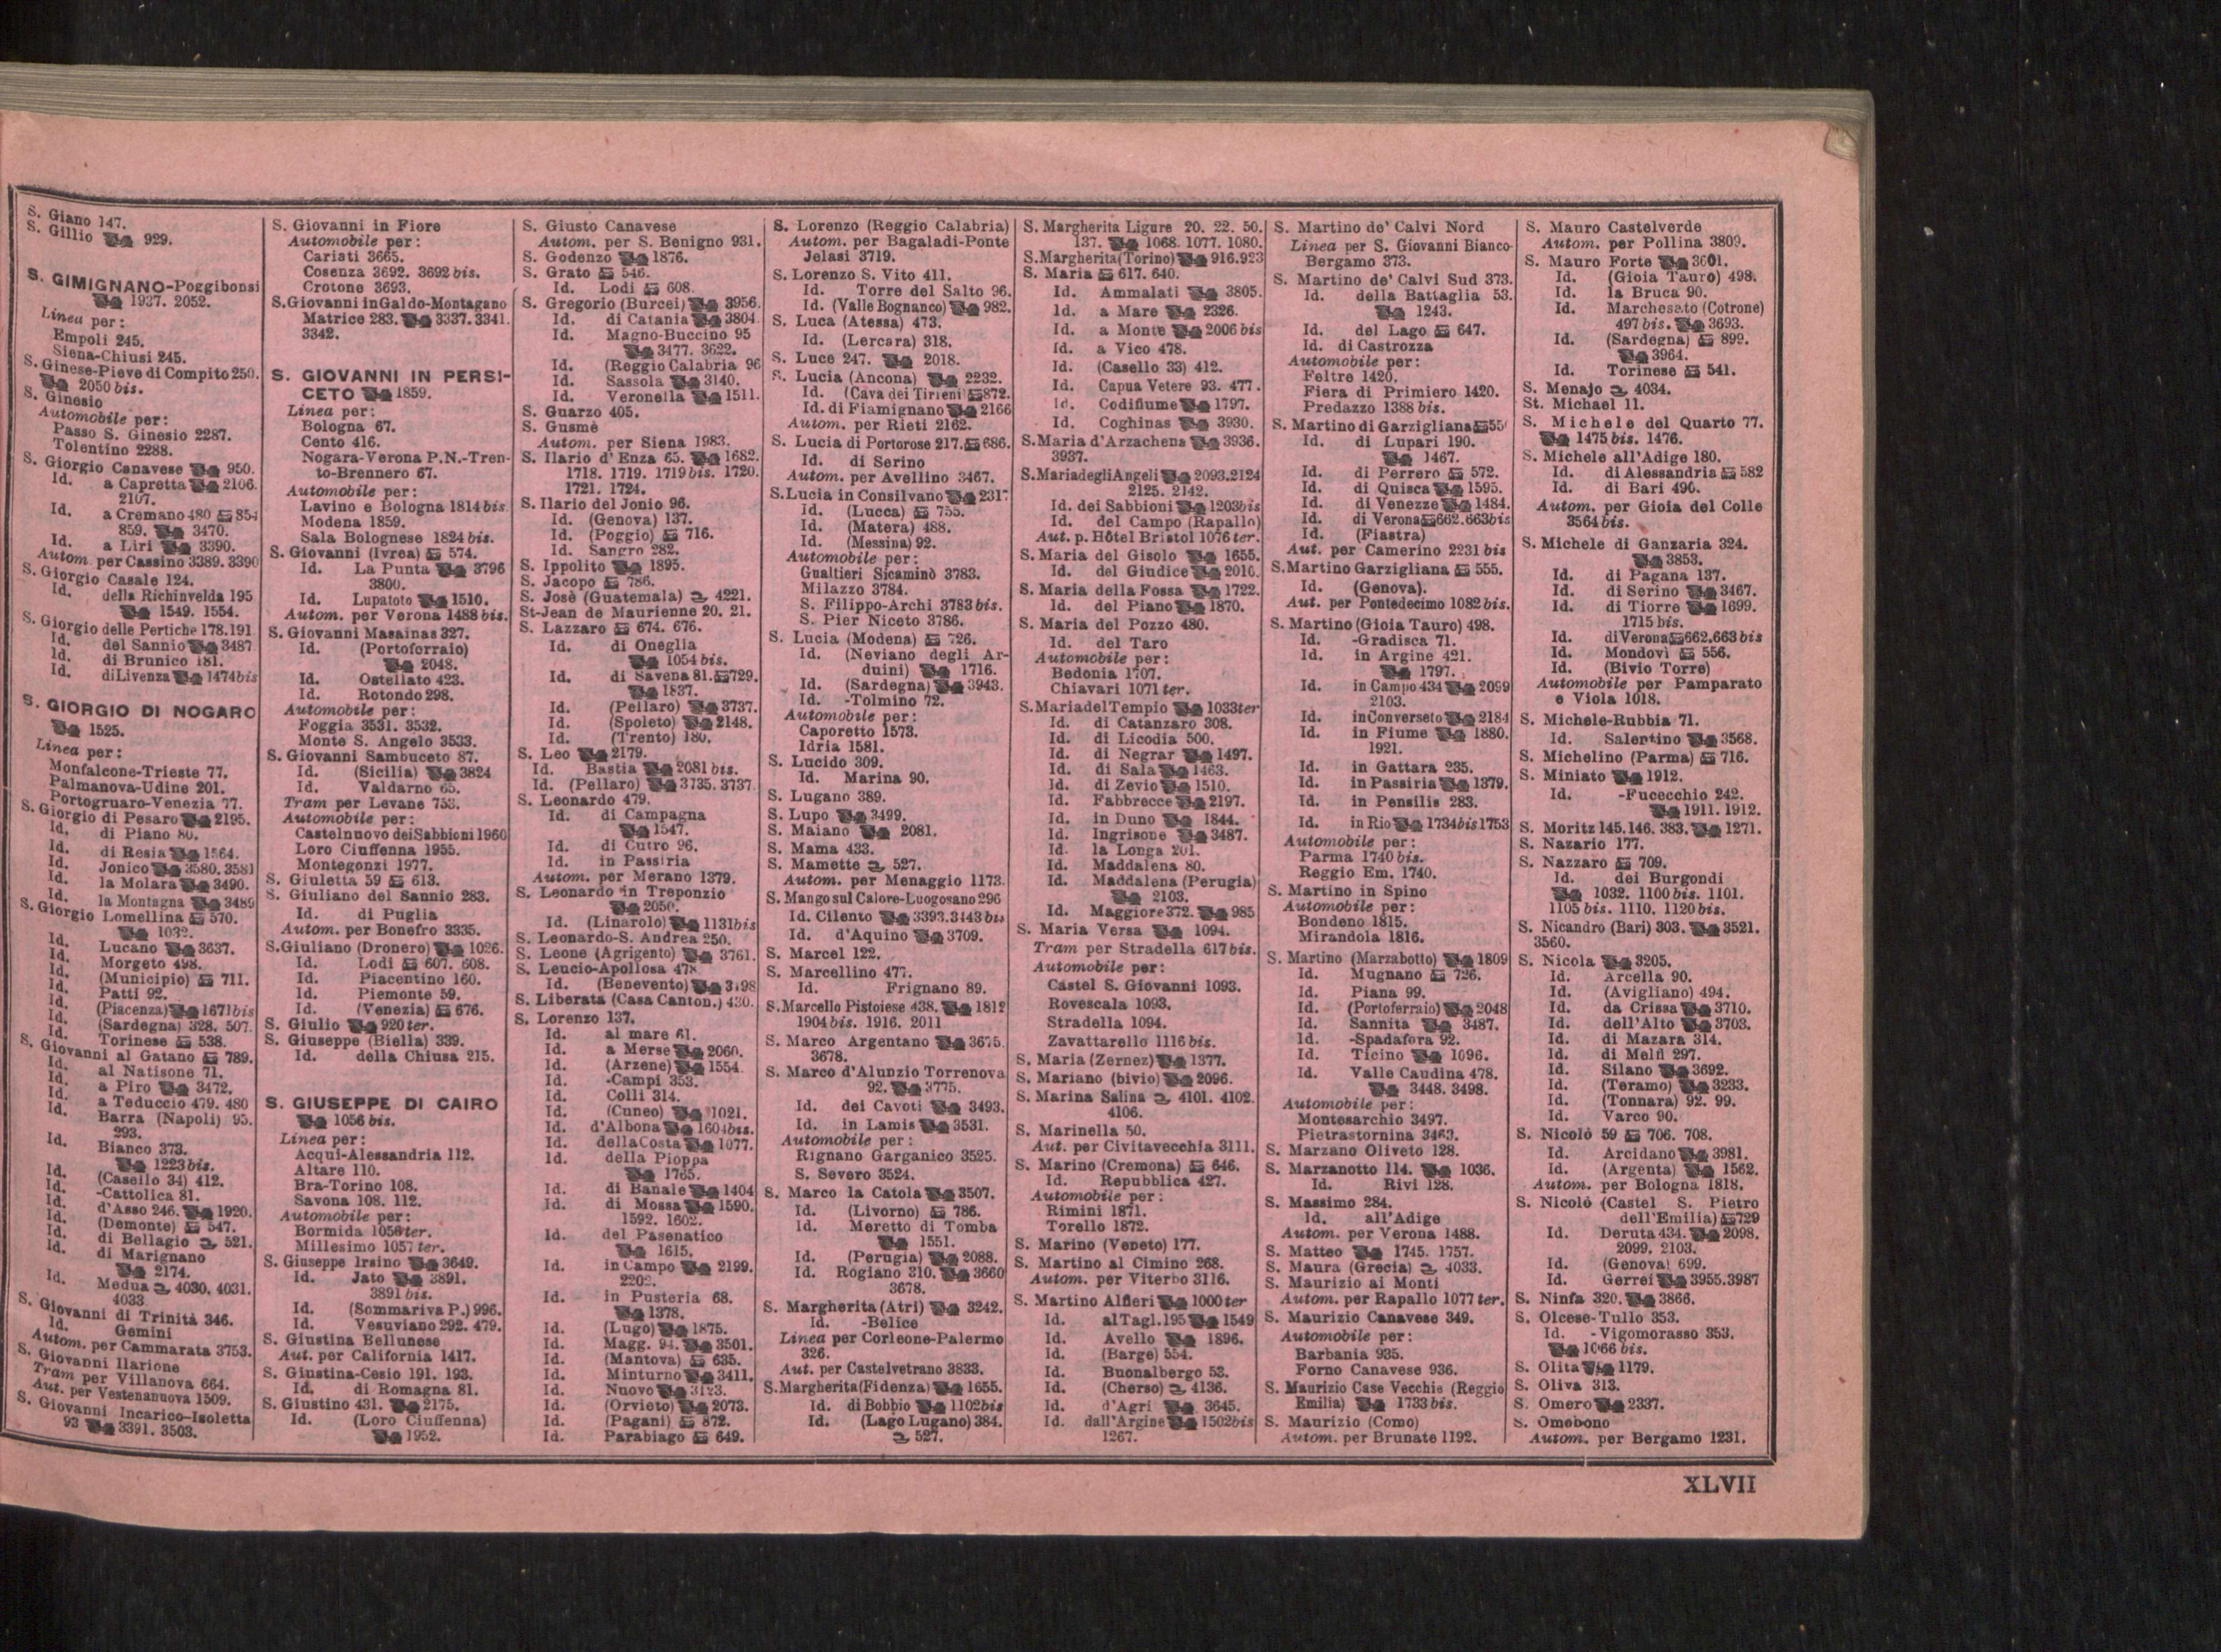 S. Giano 147.
S. Gillio 929.
S. GIMIGNANO-Poggibonsi
1937. 2052.
Linea per:
Empoli 245.
Siena-Chiusi 245.
S. Ginese-Pieve di Compito 250.
2050 bis.
S. Ginesio
Automobile per:
Passo S. Ginesio 2287.
Tolentino 2288.
S. Giorgio Canavese 950.
Id. a Capretta 2106.
2107.
Id. a Cremano 480 854
859. 3470.
Id. a Liri 3390.
Autom per Cassino 3389. 3390
S. Giorgio Casale 124.
Id. della Richinvelda 195
1549. 1554.
S. Giorgio delle Pertiche 178.191
Id. del Sannio 3487
Id. di Brunico 181.
Id. diLivenza 1474bis
S. GIORGIO DI NOGARO
1525.
Linea per:
Monfalcone-Trieste 77.
Palmanova-Udine 201.
Portogruaro-Venezia 77.
S. Giorgio di Pesaro 2195.
Id. di Piano 80.
Id. di Resia 1564.
Id. Jonico 3580. 3581
Id. la Molara 3490.
Id. la Montagna 3489
S. Giorgio Lomellina 570.
1032.
Id. Lucano 3637.
Id. Morgeto 498.
Id. (Municipio) 711.
Id. Patti 92.
Id. (Piacenza) 1671bis
Id. (Sardegna) 328. 507.
Id. Torinese 538.
S. Giovanni al Gatano 789.
Id. al Natisone 71.
Id. a Piro 3472.
Id. a Teduccio 479. 480
Id. Barra (Napoli) 95.
293.
Id. Bianco 373.
1223bis.
Id. (Casello 34) 412.
Id. -Cattolica 81.
Id. d'Asso 246. 1920.
Id. (Demonte) 547.
Id. di Bellagio 521.
Id. di Marignano
2174.
Id. Medua 4030. 4031.
4033
S. Giovanni di Trinità 346.
Id. Gemini
Autom. per Cammarata 3753.
S. Giovanni Ilarione
Tram per Villanova 664.
Aut. per Vestenanuova 1509.
S. Giovanni Incarico-Isoletta
93 3391. 3503.
S. Giovanni in Fiore
Automobile per:
Cariati 3665.
Cosenza 3692. 3692 bis.
Crotone 3693.
S.Giovanni inGaldo-Montagano
Matrice 283. 3337. 3341.
3342.
S. GIOVANNI IN PERSI-
CETO 1859.
Linea per:
Bologna 67.
Cento 416.
Nogara-Verona P.N.-Tren-
to-Brennero 67.
Automobile per:
Lavino e Bologna 1814 bis
Modena 1859.
Sala Bolognese 1824 bis.
S. Giovanni (Ivrea) 574.
Id. La Punta 3796
3800.
Id. Lupatoto 1510.
Autom. per Verona 1488 bis.
S. Giovanni Masainas 327.
Id. (Portoferraio)
2048.
Id. Ostellato 423.
Id. Rotondo 298.
Automobile per:
Foggia 3531. 3532.
Monte S. Angelo 3533.
S. Giovanni Sambuceto 87.
Id. (Sicilia) 3824
Id. Valdarno 65.
Tram per Levane 753.
Automobile per:
Castelnuovo deiSabbioni 1960
Loro Ciuffenna 1955.
Montegonzi 1977.
S. Giuletta 59 613.
S. Giuliano del Sannio 283.
Id. di Puglia
Autom. per Bonefro 3335.
S.Giuliano (Dronero) 1026.
Id. Lodi 607. 608.
Id. Piacentino 160.
Id. Piemonte 59.
Id. (Venezia) 676.
S. Giulio 920 ter.
S. Giuseppe (Biella) 339.
Id. della Chiusa 215.
S. GIUSEPPE DI CAIRO
1056 bis.
Linea per:
Acqui-Alessandria 112.
Altare 110.
Bra-Torino 108.
Savona 108. 112.
Automobile per:
Bormida 1056ter.
Millesimo 1057 ter.
S. Giuseppe Irsino 3649.
Id. Jato 3891.
3891 bis.
Id. (Sommariva P.) 996.
Id. Vesuviano 292. 479.
S. Giustina Bellunese
Aut. per California 1417.
S. Giustina-Cesio 191. 193.
Id. di Romagna 81.
S. Giustino 431. 2175.
Id. (Loro Ciuffenna)
1952.
S. Giusto Canavese
Autom. per S. Benigno 931.
S. Godenzo 1876.
S. Grato 546.
Id. Lodi 608.
S. Gregorio (Burcei) 3956.
Id. di Catania 3804.
Id. Magno-Buccino 95
3477. 3622.
Id. (Reggio Calabria 96
Id. Sassola 3140.
Id. Veronella 1511.
S. Guarzo 405.
S. Gusmè
Autom. per Siena 1983.
S. Ilario d'Enza 65. 1682.
1718. 1719. 1719 bis. 1720.
1721. 1724.
S. Ilario del Jonio 96.
Id. (Genova) 137.
Id. (Poggio) 716.
Id. Sangro 282.
S. Ippolito 1895.
S. Jacopo 786.
S. Josè (Guatemala) 4221.
St-Jean de Maurienne 20. 21.
S. Lazzaro 674. 676.
Id. di Oneglia
1054 bis.
Id. di Savena 81. 729.
1837.
Id. (Pellaro) 3737.
Id. (Spoleto) 2148.
Id. (Trento) 180.
S. Leo 2179.
Id. Bastia 2081 bis.
Id. (Pellaro) 3735. 3737
S. Leonardo 479.
Id. di Campagna
1547.
Id. di Cutro 96.
Id. in Passiria
Autom. per Merano 1379.
S. Leonardo in Treponzio
2050.
Id. (Linarolo) 1131bis
S. Leonardo-S. Andrea 250.
S. Leone (Agrigento) 3761.
S. Leucio-Apollosa 478
Id. (Benevento) 3498
S. Liberata (Casa Canton.) 430.
S. Lorenzo 137.
Id. al mare 61.
Id. a Merse 2060.
Id. (Arzene) 1554.
Id. -Campi 353.
Id. Colli 314.
Id. (Cuneo) 1021.
Id. d'Albona 1604bis.
Id. dellaCosta 1077.
Id. della Pioppa
1765.
Id. di Banale 1404
Id. di Mossa 1590.
1592. 1602.
Id. del Pasenatico
1615.
Id. in Campo 2199.
2202.
Id. in Pusteria 68.
1378.
Id. (Lugo) 1875.
Id. Magg. 94. 3501.
Id. (Mantova) 635.
Id. Minturno 3411.
Id. Nuovo 3123.
Id. (Orvieto) 2073.
Id. (Pagani) 872.
Id. Parabiago 649.
S. Lorenzo (Reggio Calabria)
Autom. per Bagaladi-Ponte
Jelasi 3719.
S. Lorenzo S. Vito 411.
Id. Torre del Salto 96.
Id. (Valle Bognanco) 982.
S. Luca (Atessa) 473.
Id. (Lercara) 318.
S. Luce 247. 2018.
S. Lucia (Ancona) 2232.
Id. (Cava dei Tirreni 872.
Id. di Fiamignano 2166
Autom. per Rieti 2162.
S. Lucia di Portorose 217. 686.
Id. di Serino
Autom. per Avellino 3467.
S.Lucia in Consilvano 2317
Id. (Lucca) 755.
Id. (Matera) 488.
Id. (Messina) 92.
Automobile per:
Gualtieri Sicaminò 3783.
Milazzo 3784.
S. Filippo-Archi 3783 bis.
S. Pier Niceto 3786.
S. Lucia (Modena) 726.
Id. (Neviano degli Ar-
duini) 1716.
Id. (Sardegna) 3943.
Id. -Tolmino 72.
Automobile per:
Caporetto 1573.
Idria 1581.
S. Lucido 309.
Id. Marina 90.
S. Lugano 389.
S. Lupo 3499.
S. Maiano 2081.
S. Mama 433.
S. Mamette 527.
Autom. per Menaggio 1173.
S. Mango sul Calore-Luogosano 296
Id. Cilento 3393.3443 bis
Id. d'Aquino 3709.
S. Marcel 122.
S. Marcellino 477.
Id. Frignano 89.
S.Marcello Pistoiese 438. 1812
1904 bis. 1916. 2011
S. Marco Argentano 3675.
3678.
S. Marco d'Alunzio Torrenova
92. 3775.
Id. dei Cavoti 3493.
Id. in Lamis 3531.
Automobile per:
Rignano Garganico 3525.
S. Severo 3524.
S. Marco la Catola 3507.
Id. (Livorno) 786.
Id. Meretto di Tomba
1551.
Id. (Perugia) 2088.
Id. Rogiano 310. 3660
3678.
S. Margherita (Atri) 3242.
Id. -Belice
Linea per Corleone-Palermo
326.
Aut. per Castelvetrano 3833.
S.Margherita(Fidenza) 1655.
Id. di Bobbio 1102bis
Id. (Lago Lugano) 384.
527.
S. Margherita Ligure 20. 22. 50.
137. 1068. 1077. 1080.
S.Margherita(Torino) 916.923
S. Maria 617. 640.
Id. Ammalati 3805.
Id. a Mare 2326.
Id. a Monte 2006 bis
Id. a Vico 478.
Id. (Casello 33) 412.
Id. Capua Vetere 93. 477.
Id. Codifiume 1797.
Id. Coghinas 3930.
S.Maria d'Arzachena 3936.
3937.
S.MariadegliAngeli 2093.2124
2125. 2142.
Id. dei Sabbioni 1203bis
Id. del Campo (Rapallo)
Aut. p. Hôtel Bristol 1076 ter.
S. Maria del Gisolo 1655.
Id. del Giudice 2010.
S. Maria della Fossa 1722.
Id. del Piano 1870.
S. Maria del Pozzo 480.
Id. del Taro
Automobile per:
Bedonia 1707.
Chiavari 1071 ter.
S.MariadelTempio 1033ter
Id. di Catanzaro 308.
Id. di Licodia 500.
Id. di Negrar 1497.
Id. di Sala 1463.
Id. di Zevio 1510.
Id. Fabbrecce 2197.
Id. in Duno 1844.
Id. Ingrisone 3487.
Id. la Longa 201.
Id. Maddalena 80.
Id. Maddalena (Perugia)
2103.
Id. Maggiore 372. 985
S. Maria Versa 1094.
Tram per Stradella 617 bis.
Automobile per:
Castel S. Giovanni 1093.
Rovescala 1093.
Stradella 1094.
Zavattarello 1116 bis.
S. Maria (Zernez) 1377.
S. Mariano (bivio) 2096.
S. Marina Salina 4101. 4102.
4106.
S. Marinella 50.
Aut. per Civitavecchia 3111.
S. Marino (Cremona) 646.
Id. Repubblica 427.
Automobile per:
Rimini 1871.
Torello 1872.
S. Marino (Veneto) 177.
S. Martino al Cimino 268.
Autom. per Viterbo 3116.
S. Martino Alfieri 1000 ter
Id. alTagl.195 1549
Id. Avello 1896.
Id. (Barge) 554.
Id. Buonalbergo 53.
Id. (Cherso) 4136.
Id. d'Agri 3645.
Id. dall'Argine 1502bis
1267.
S. Martino de' Calvi Nord
Linea per S. Giovanni Bianco-
Bergamo 373.
S. Martino de' Calvi Sud 373.
Id. della Battaglia 53.
1243.
Id. del Lago 647.
Id. di Castrozza
Automobile per:
Feltre 1420.
Fiera di Primiero 1420.
Predazzo 1388 bis.
S. Martino di Garzigliana
Id. di Lupari 190.
1467.
Id. di Perrero 572.
Id. di Quisca 1595.
Id. di Venezze 1484.
Id. di Verona 662.663bis
Id. (Fiastra)
Aut. per Camerino 2231 bis
S.Martino Garzigliana 555.
Id. (Genova).
Aut. per Pontedecimo 1082 bis.
S. Martino (Gioia Tauro) 498.
Id. -Gradisca 71.
Id. in Argine 421.
1797.
Id. in Campo 434 2099
2103.
Id. inConverseto 2184
Id. in Fiume 1880.
1921.
Id. in Gattara 235.
Id. in Passiria 1379.
Id. in Pensilis 283.
Id. in Rio 1734bis1753
Automobile per:
Parma 1740 bis.
Reggio Em. 1740.
S. Martino in Spino
Automobile per:
Bondeno 1815.
Mirandola 1816.
S. Martino (Marzabotto) 1809
Id. Mugnano 726.
Id. Piana 99.
Id. (Portoferraio) 2048
Id. Sannita 3487.
Id. -Spadafora 92.
Id. Ticino 1096.
Id. Valle Caudina 478.
3448. 3498.
Automobile per:
Montesarchio 3497.
Pietrastornina 3463.
S. Marzano Oliveto 128.
S. Marzanotto 114. 1036.
Id. Rivi 128.
S. Massimo 284.
Id. all'Adige
Autom. per Verona 1488.
S. Matteo 1745. 1757.
S. Maura (Grecia) 4033.
S. Maurizio ai Monti
Autom. per Rapallo 1077 ter.
S. Maurizio Canavese 349.
Automobile per:
Barbania 935.
Forno Canavese 936.
S. Maurizio Case Vecchie (Reggio
Emilia) 1733 bis.
S. Maurizio (Como)
Autom. per Brunate 1192.
S. Mauro Castelverde
Autom. per Pollina 3809.
S. Mauro Forte 3601.
Id. (Gioia Tauro) 498.
Id. la Bruca 90.
Id. Marchesato (Cotrone)
497 bis. 3693.
Id. (Sardegna) 899.
3964.
Id. Torinese 541.
S. Menajo 4034.
St. Michael 11.
S. Michele del Quarto 77.
1475 bis. 1476.
S. Michele all'Adige 180.
Id. di Alessandria 582
Id. di Bari 496.
Autom. per Gioia del Colle
3564 bis.
S. Michele di Ganzaria 324.
3853.
Id. di Pagana 137.
Id. di Serino 3467.
Id. di Tiorre 1699.
1715 bis.
Id. diVerona 662.663 bis
Id. Mondovì 556.
Id. (Bivio Torre)
Automobile per Pamparato
e Viola 1018.
S. Michele-Rubbia 71.
Id. Salentino 3568.
S. Michelino (Parma) 716.
S. Miniato 1912.
Id. -Fucecchio 242.
1911. 1912.
S. Moritz 145. 146. 383. 1271.
S. Nazario 177.
S. Nazzaro 709.
Id. dei Burgondi
1032. 1100 bis. 1101.
1105 bis. 1110. 1120 bis.
S. Nicandro (Bari) 303. 3521.
3560.
S. Nicola 3205.
Id. Arcella 90.
Id. (Avigliano) 494.
Id. da Crissa 3710.
Id. dell'Alto 3703.
Id. di Mazara 314.
Id. di Melfi 297.
Id. Silano 3692.
Id. (Teramo) 3233.
Id. (Tonnara) 92. 99.
Id. Varco 90.
S. Nicolò 59 706. 708.
Id. Arcidano 3981.
Id. (Argenta) 1562.
Autom. per Bologna 1818.
S. Nicolò (Castel S. Pietro
dell'Emilia) 729
Id. Deruta 434. 2098.
2099. 2103.
Id. (Genova) 699.
Id. Gerrei 3955.3987
S. Ninfa 320. 3866.
S. Olcese-Tullo 353.
Id. - Vigomorasso 353.
1066 bis.
S. Olita 1179.
S. Oliva 313.
S. Omero 2337.
S. Omobono
Autom. per Bergamo 1231.
XLVII